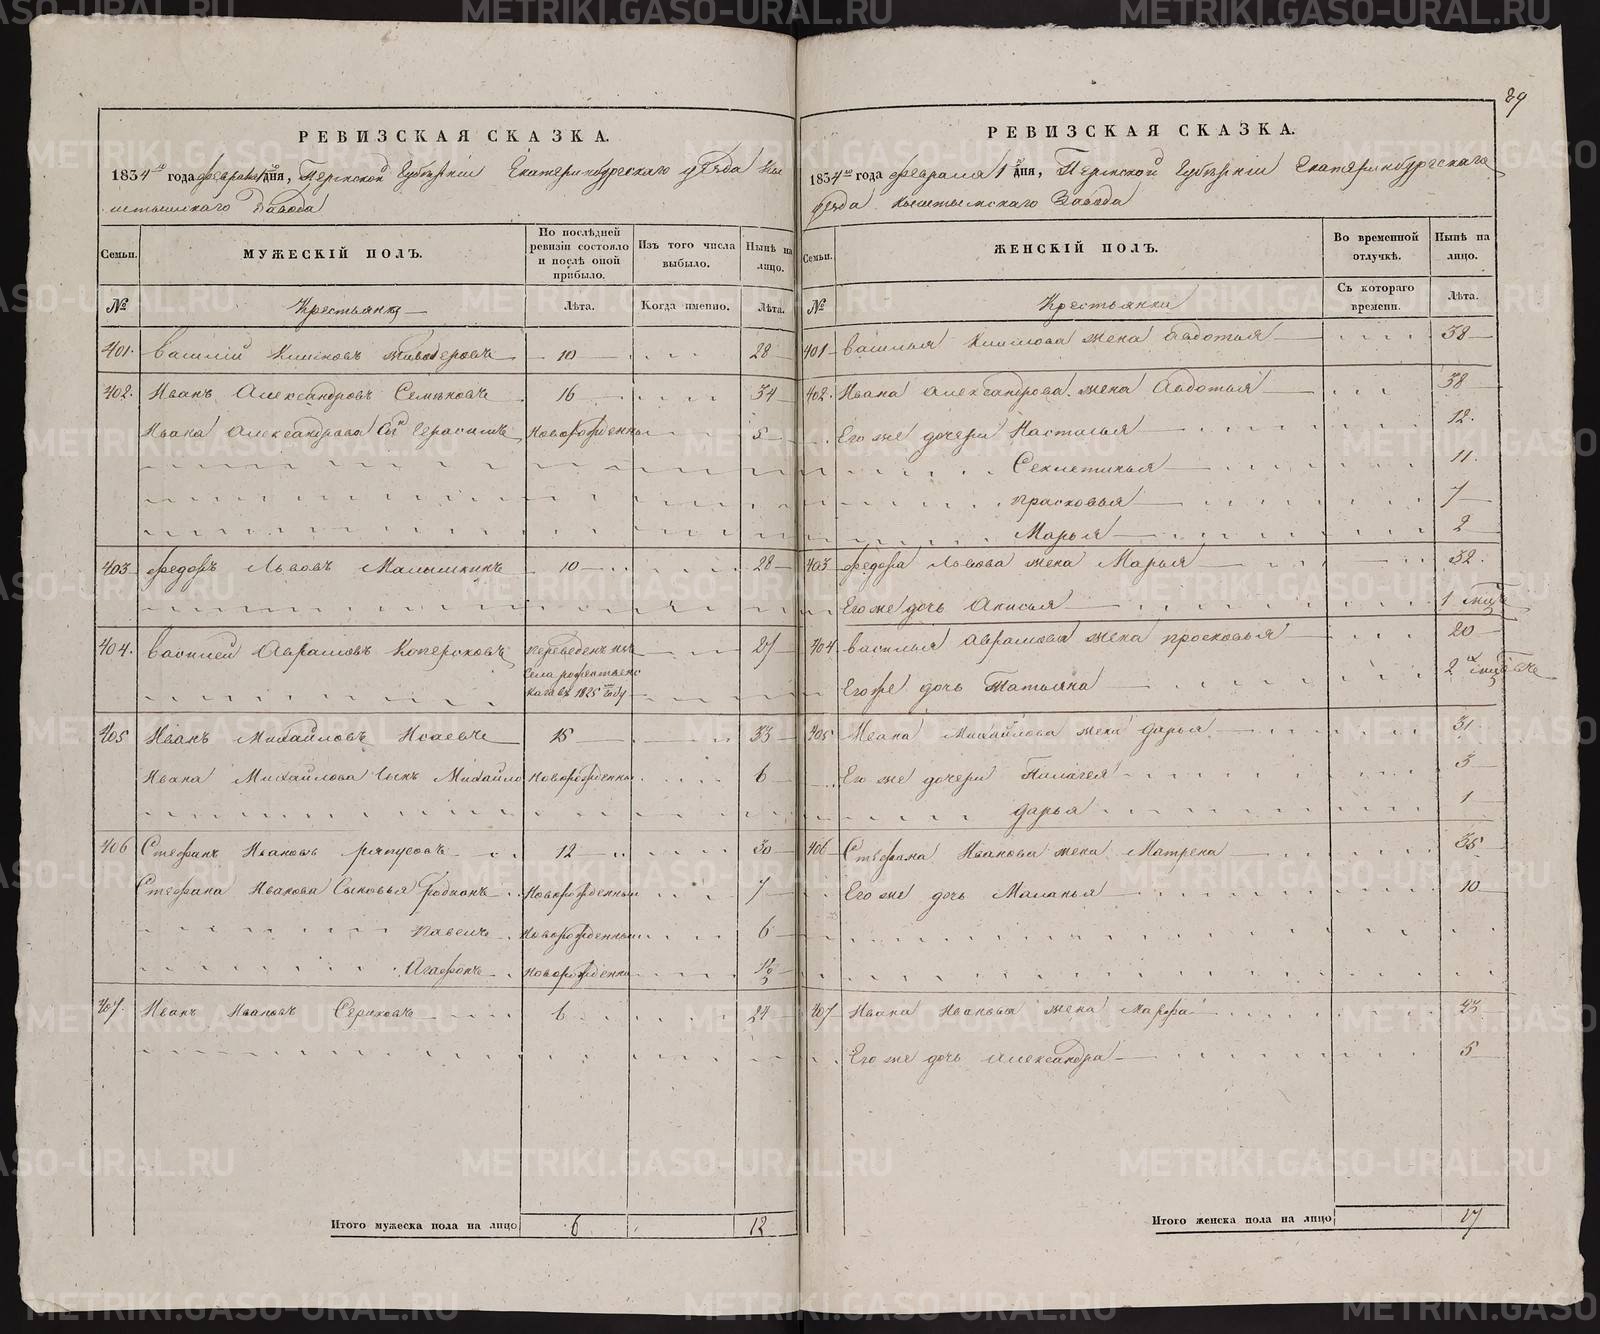 89
РЕВИЗСКАЯ СКАЗКА.
1834го года февраля 1го дня, Пермской Губерніи Екатеринбургскаго уезда Кы
штымскаго Завода
Семьи.
МУЖЕСКІЙ ПОЛЪ.
По послѣдней ревизіи состояло и послѣ оной прибыло.
Изъ того числа выбыло.
Нынѣ на лицо.
№
Крестьянъ
Лѣта.
Когда именно.
Лѣта.
401. Василій 10 28
402. Иванъ Александровъ Семеновъ 16 34
Ивана Александрова Сынъ Герасимъ Новорожденны 5
403 Федоръ Львовъ Малышкинъ 10 28
404. Василей Аврамовъ переведенъ изъ 27
Села
1825 году
405 Иванъ Михайловъ Исаевъ 15 33
Ивана Михайлова Сынъ Михайло Новорожденны 6
406 Стефанъ Ивановъ 12 30
Стефана Иванова Сыновья Новорожденный 7
Павелъ Новорожденный 6
Агафонъ Новорожденны
407. Иванъ Ивановъ 6 24
Итого мужеска пола на лицо 6 12
РЕВИЗСКАЯ СКАЗКА.
1834го года февраля 1го дня, Пермской Губерніи Екатеринбургскаго
уезда Кыштымскаго Завода
Семьи.
ЖЕНСКІЙ ПОЛЪ.
Во временной отлучкѣ.
Нынѣ на лицо.
№
Крестьянки
Съ котораго времени.
Лѣта.
401 Василья жена Авдотья 38
402. Ивана Александрова жена Авдотья 38
Его же дочери Настасья 12.
Секлетинья 11.
Прасковья 7
Марья 2
403 Федора Львова жена Марья 32.
Его же дочь Анисья 1
404 Василья Аврамова жена Просковья 20
Его же дочь Татьяна 2
405 Ивана Михайлова жена Дарья 31
Его же дочери Палагея 3
Дарья 1
406 Стефана Иванова жена Матрена 35
Его же дочь Маланья 10
407 Ивана Иванова жена Марфа
Его же дочь Александра 5
Итого женска пола на лицо 17
METRIKI.GASO-URAL.RU